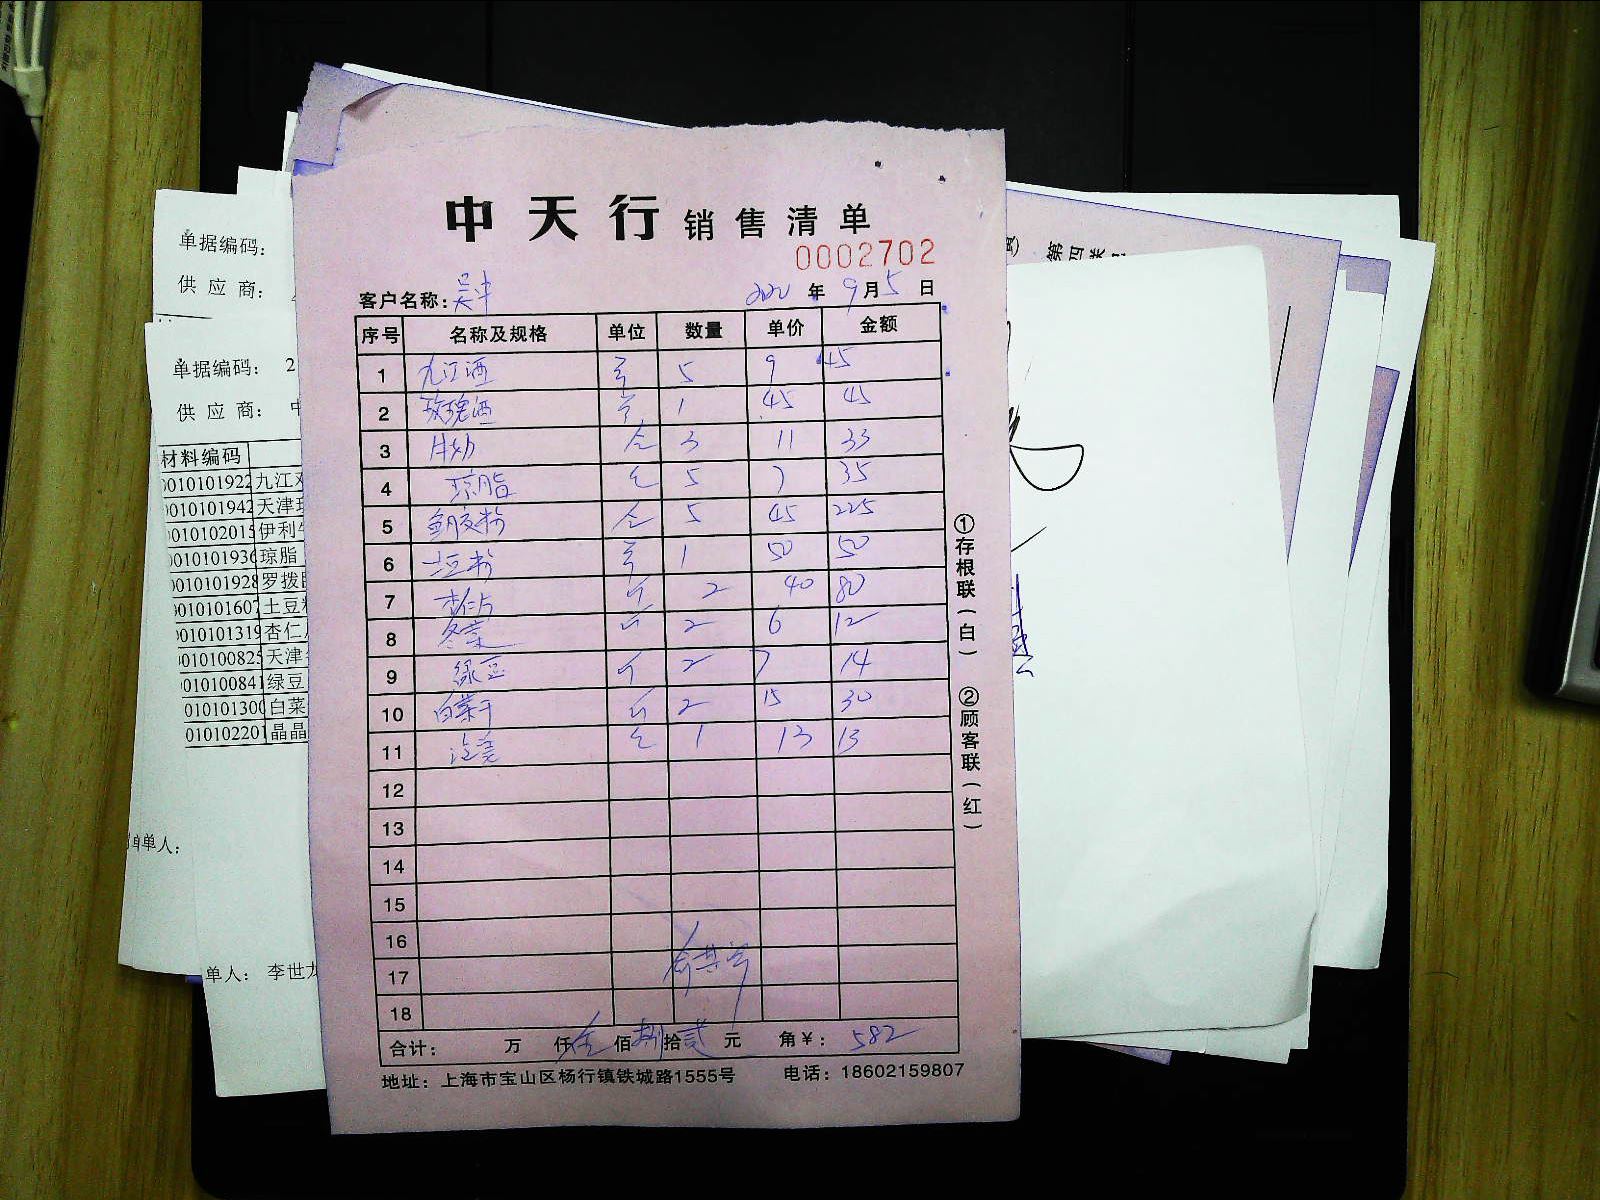 中天行 销售清单
0002702
客户名称: 年 9月5日
序号 名称及规格 单位 数量 单价 金额
1 九江酒 5 9 45
2 玫瑰酒 1 45 45
3 3 11 33
4 琼脂 5 7 35
5 5 45 225
6 土豆粉 1 50 50
7 杏仁片 2 40 80
8 冬菜 2 6 12
9 绿豆 2 7 14
10 白菜干 2 15 30
11 1 13 13
12
13
14
15
16
17
18
合计: 万 仟 伍 佰 捌 拾 贰 元 角¥: 582
地址: 上海市宝山区杨行镇铁城路1555号 电话: 18602159807
①存根联(白) ②顾客联(红)
单据编码:
供应商:
单据编码: 2
供应商: 中
材料编码
0010101922 九江
0010101942 天津
0010102015 伊利
0010101936 琼脂
0010101928 罗拨
0010101607 土豆
0010101319 杏仁
0010100825 天津
0010100841 绿豆
010101300 白菜
010102201 晶晶
单人:
单人: 李世龙
第四类